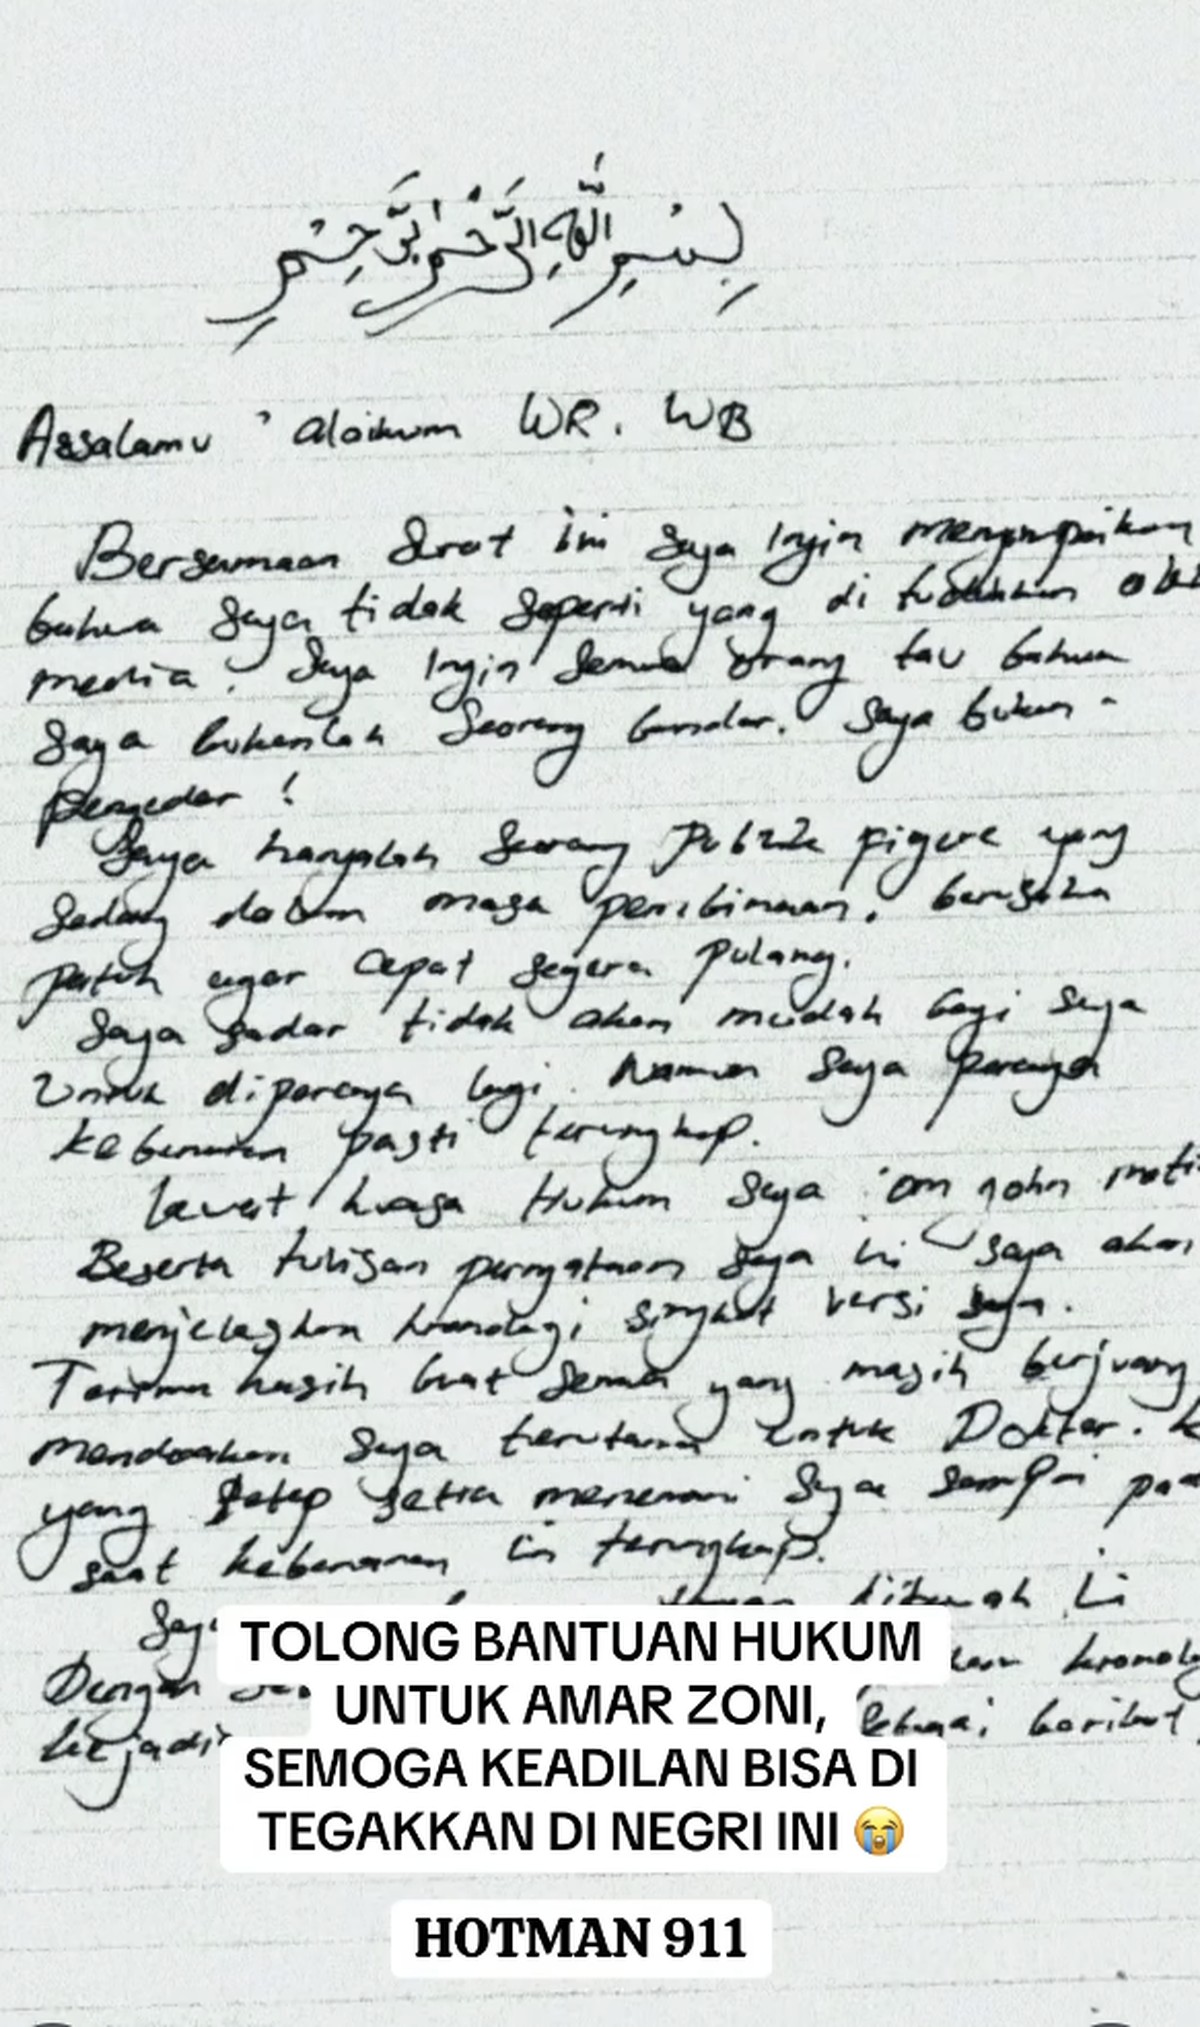 بِسْمِ اللَّهِ الرَّحْمٰنِ الرَّحِيْمِ
Assalamu 'alaikum WR. WB
Bersamaan Surat ini saya Ingin menyampaikan
bahwa saya tidak seperti yang di tuduhkan
media. Saya Ingin semua orang tau bahwa
saya bukanlah seorang bandar. Saya bukan -
pengedar !
Saya hanyalah seorang Publik figure yang
sedang dalam masa pembinaan. berusaha
patuh agar cepat segera pulang.
Saya sadar tidak akan mudah bagi saya
Untuk dipercaya lagi. Namun saya percaya
kebenaran pasti terungkap.
Lewat kuasa Hukum saya 'om John
Beserta tulisan pernyataan saya ini saya akan
menjelaskan kronologi singkat versi saya.
Terima kasih buat semua yang masih berjuang
mendoakan saya terutama untuk Dokter.
yang tetap setia menemani saya sampai
saat kebenaran ini terungkap.
Saya
Dengan
TOLONG BANTUAN HUKUM
UNTUK AMAR ZONI,
SEMOGA KEADILAN BISA DI
TEGAKKAN DI NEGRI INI 😭
HOTMAN 911